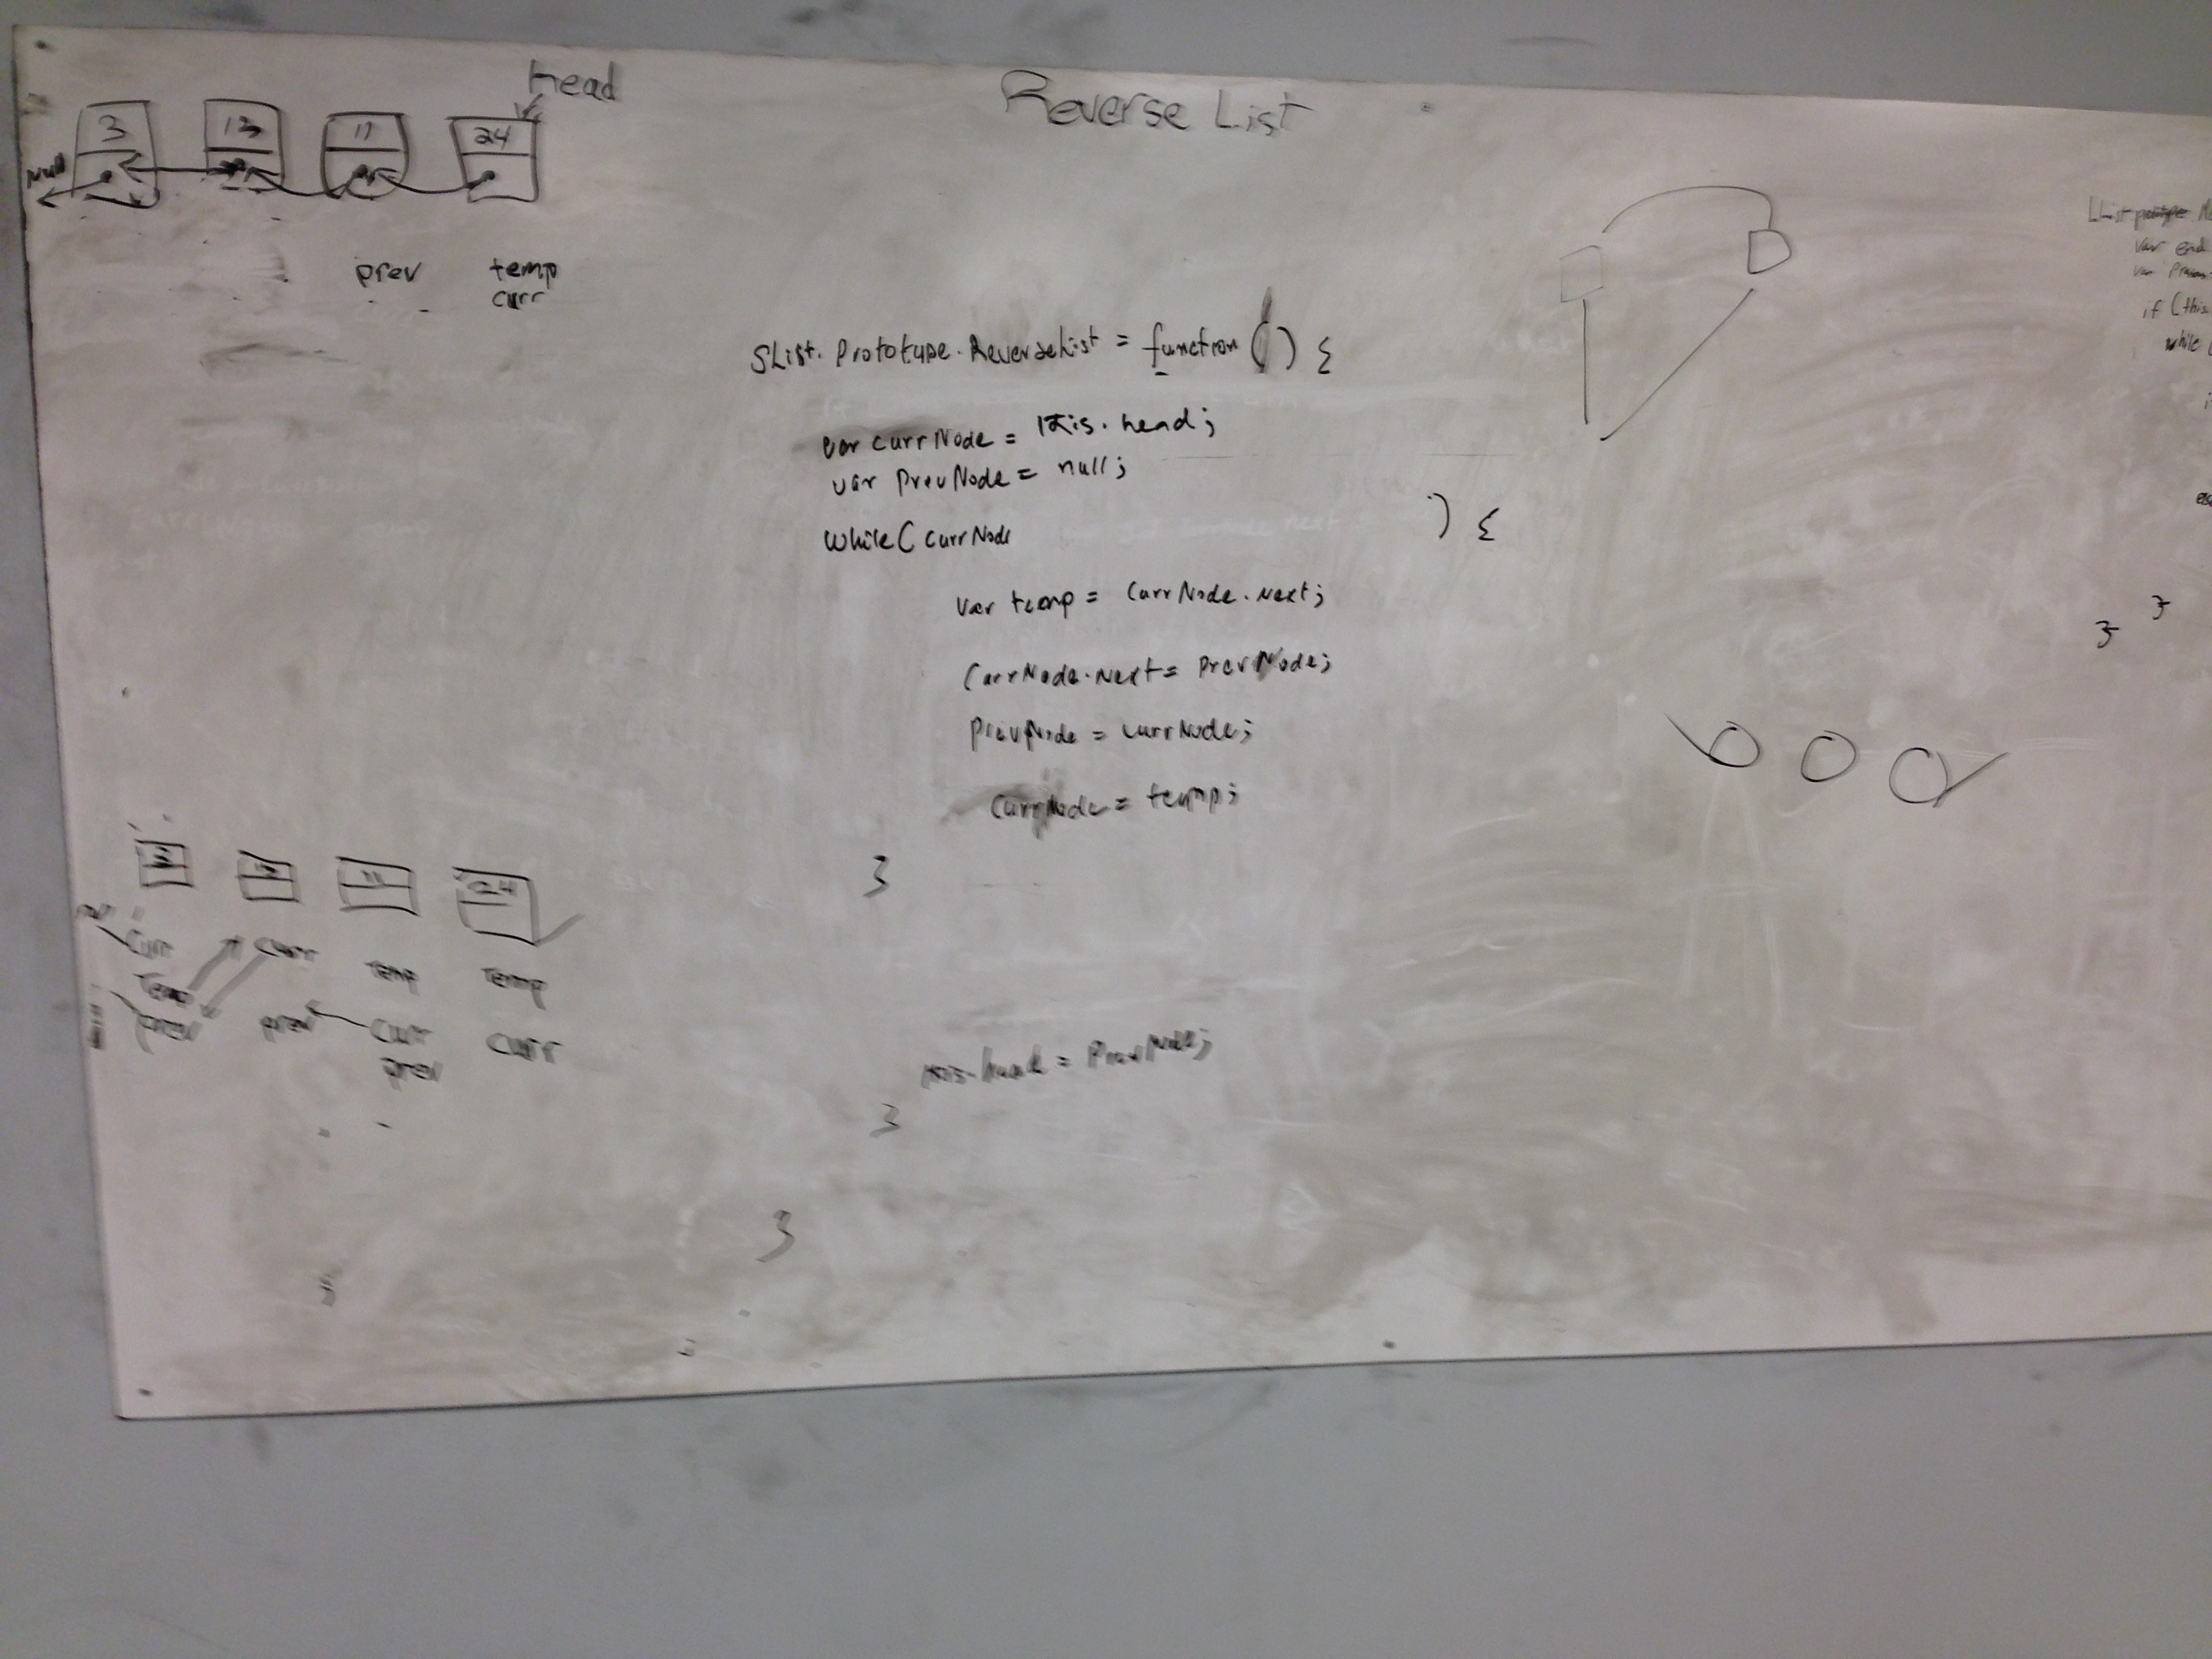 Head
Reverse List
3 13 11 24
Null
prev temp
curr
SList.Prototype.ReverseList = function() {
var currNode = this.head;
var prevNode = null;
while( currNode ) {
var temp = currNode.next;
currNode.next = prevNode;
prevNode = currNode;
currNode = temp;
}
11 24
Curr Curr Temp Temp
Temp
prev prev Curr Curr
prev
this.head = PrevNode;
}
}
LList
var end
var
if (this.
while (
} }